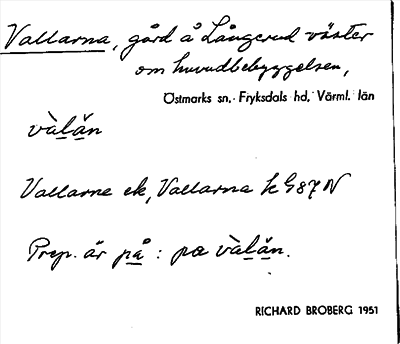 Vallarna, gård å Långerud väster
om huvudbebyggelsen,
Östmarks sn, Fryksdals hd, Värml. län
vàlăn
Vallarne ek, Vallarna k G87N
Prep. är på : pα vàlăn.
RICHARD BROBERG 1951